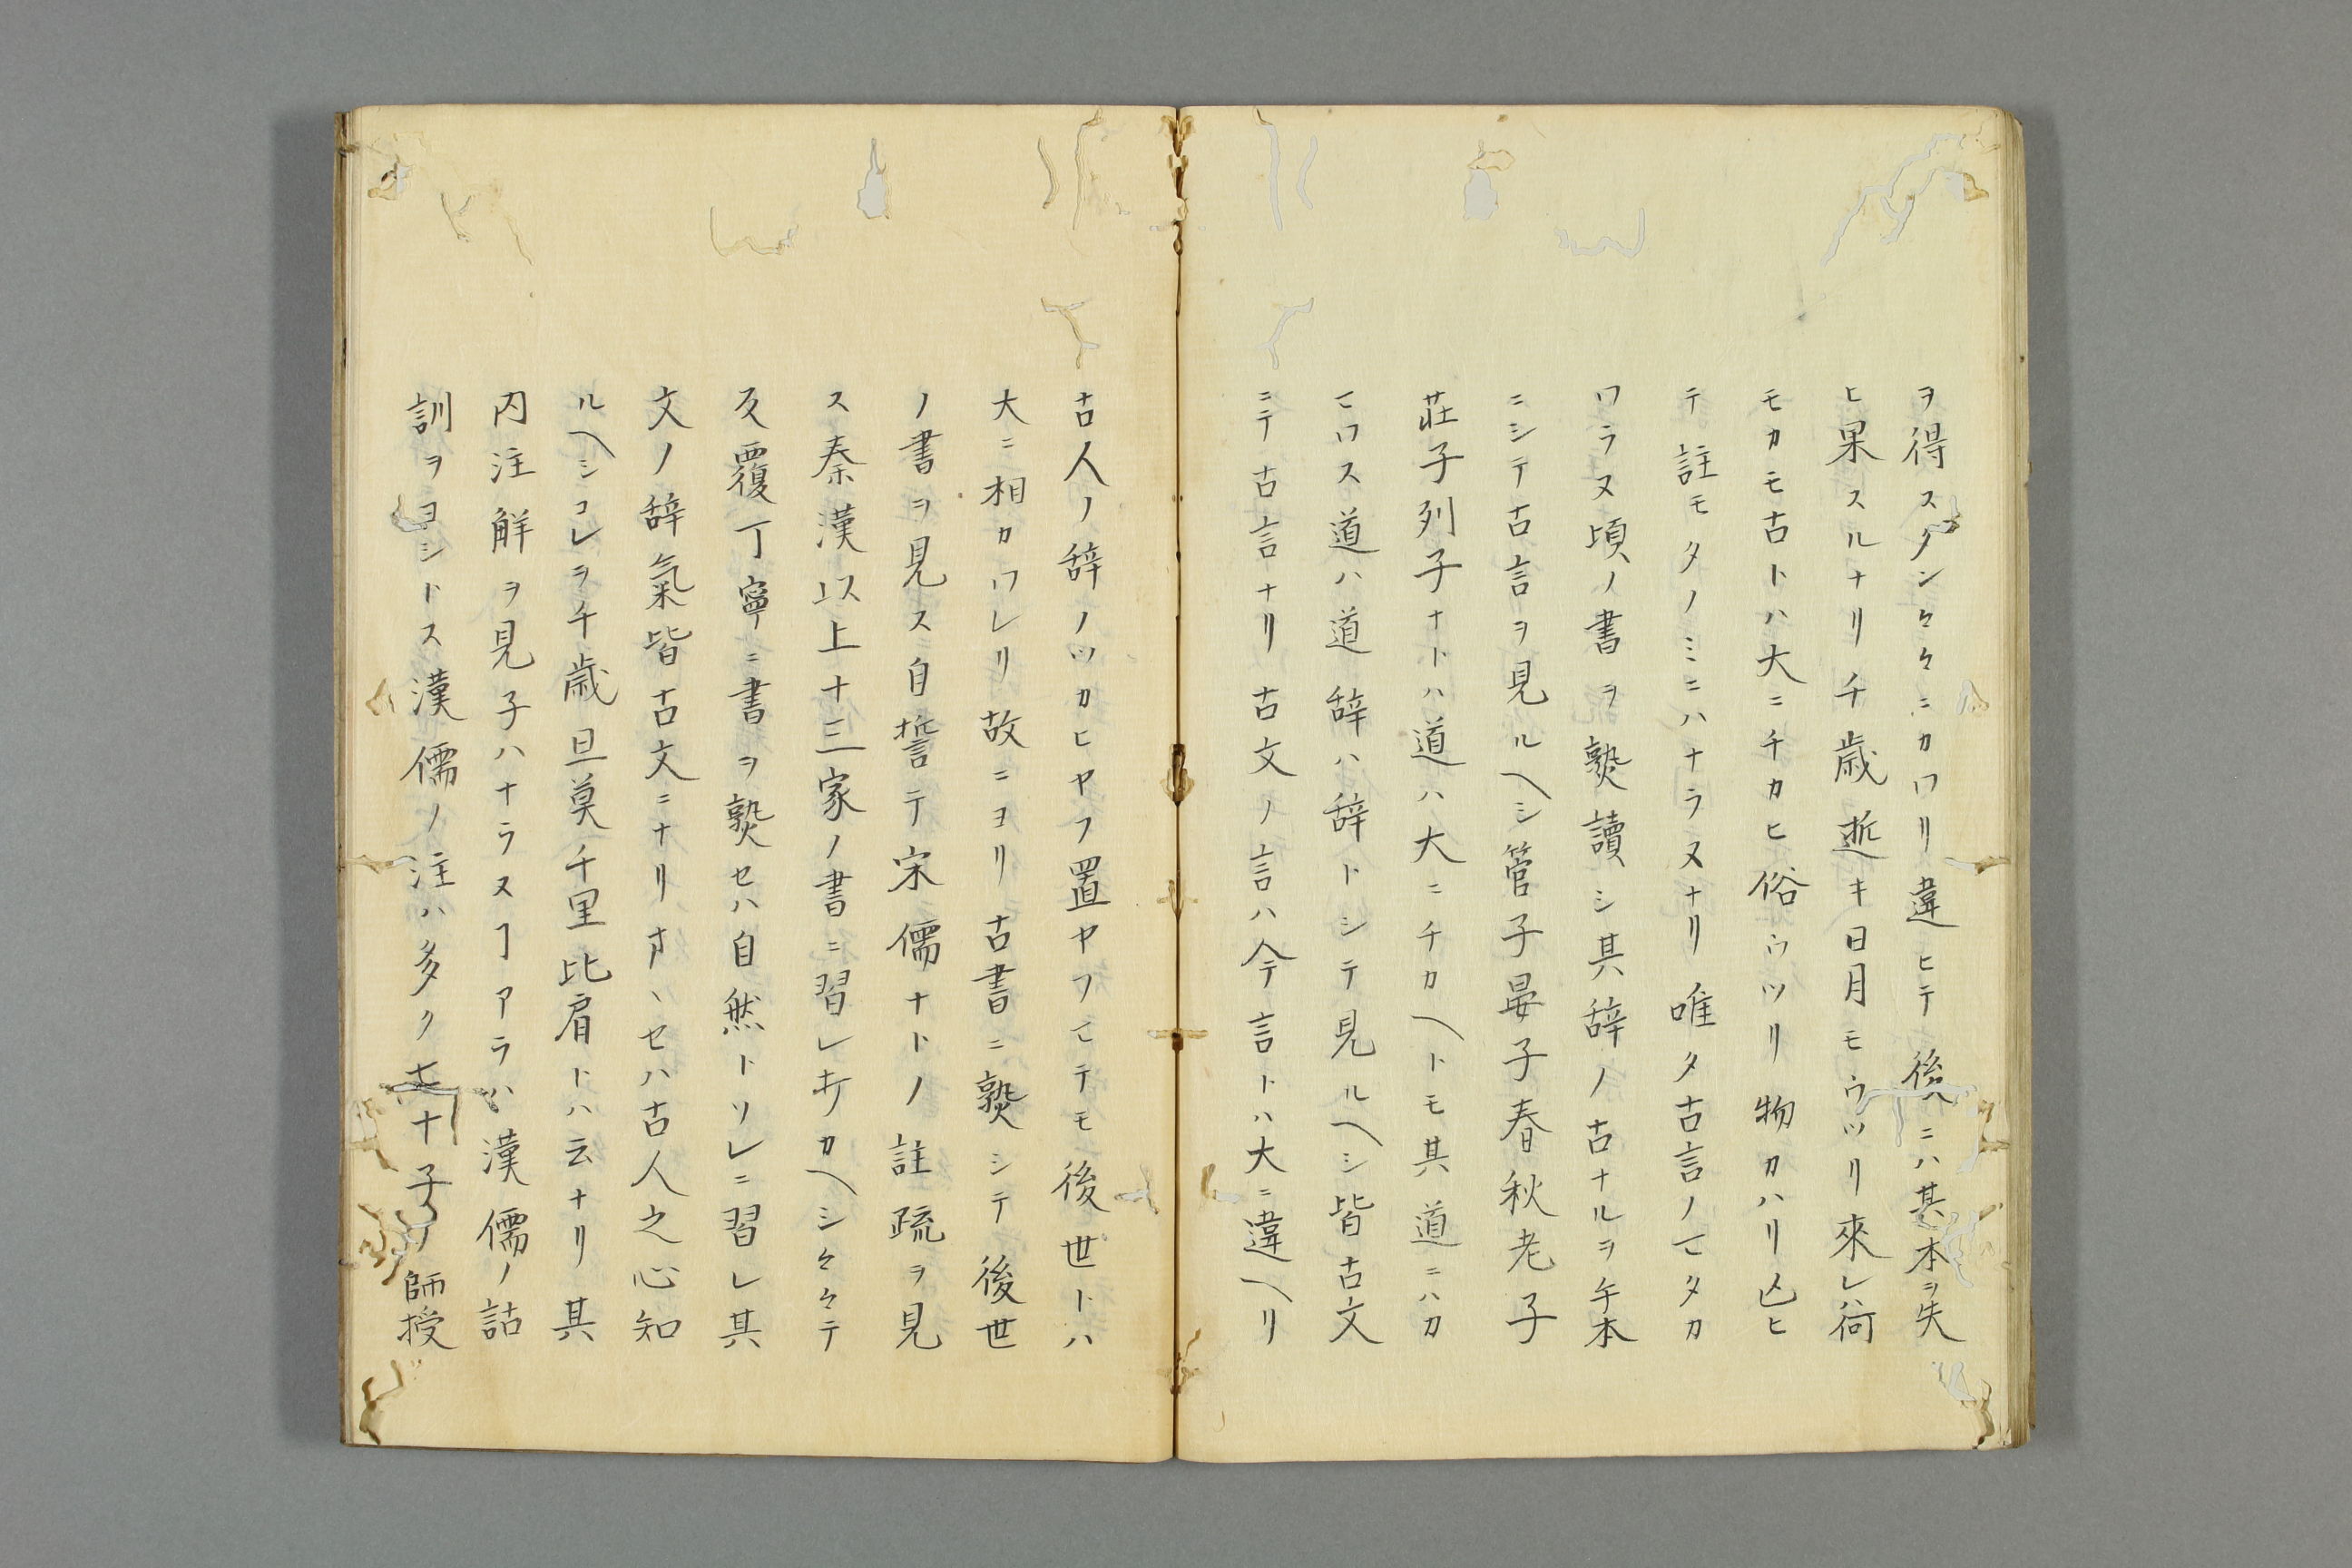 ヲ得スタン々々ニカワリ違ヒテ後ハニハ其本ヲ失
ヒ果スルナリ千歳逝キ日月モウツリ來レハ荷
モカモ古トハ大ニチカヒ俗ウツリ物カハリ亾ヒ
テ註モタノミニハナラヌナリ唯タ古言ノマタカ
ワラヌ頃ノ書ヲ熟讀シ其辞ノ古ナルヲ手本
ニシテ古言ヲ見ルヘシ管子晏子春秋老子
莊子列子ナトハ道ハ大ニチカヘトモ其道ニハカ
マワス道ハ道辞ハ辞トシテ見ルヘシ皆古文
ニテ古言ナリ古文ノ言ハ今テ言トハ大ニ違ヘリ
古人ノ辞ノツカヒヤフ置ヤフマテモ後世トハ
大ニ相カワレリ故ニヨリ古書ニ熟シテ後世
ノ書ヲ見ス自誓テ宋儒ナトノ註疏ヲ見
ス秦漢以上十三家ノ書ニ習レキカヘシ々々テ
反覆丁寧ニ書ヲ熟セハ自然トソレニ習レ其
文ノ辞氣皆古文ニナリサヽセハ古人之心知
ルヘシコレヲ千歳旦莫千里比肩トハ云ナリ其
内注解ヲ見子ハナラヌヿアラハ漢儒ノ詁
訓ヲヨシトス漢儒ノ注ハ多ク七十子ノ師授